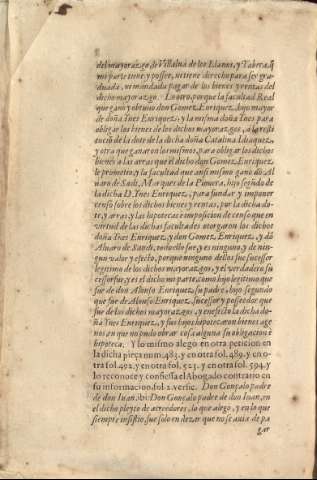 del mayorazgo de Villalua de los Llanos, y Tabera, q̃
mi parte tiene, y possee, ni tiene derecho para ser gra
duada, ni mandada pagar de los bienes y rentas del
dicho mayorazgo. Lo otro, porque la facultad Real
que ganò y obtuuo don Gomez Enriquez, hijo mayor
de doña Ynes Enriquez, y la misma doña Ynes para
obligar los bienes de los dichos mayorazgos, a la resti
tucion de la dote de la dicha doña Catalina Idiaquez,
y otra que ganaron los mismos, para obligar los dichos
bienes a las arras que el dicho don Gomez Enriquez
le prometio, y la facultad que ansi mismo ganò dõ Al
uaro de Sandi, Marques de la Piouera, hijo segũdo de
la dicha D. Ynes Enriquez, para fundar y imponer
censo sobre los dichos bienes y rentas, por la dicha do-
te, y arras, y las hipotecas e imposicion de censo que en
virtud de las dichas facultades otorgaron los dichos
doña Ynes Enriquez, y don Gomez Enriquez, y dõ
Aluaro de Sandi, todo ello fue, y es ninguno, y de nin-
gun valor y efecto, porque ninguno dellos fue sucessor
legitimo de los dichos mayorazgos, y el verdadero su
cessor fue, y es el dicho mi parte, como hijo legitimo que
fue de don Alonso Enriquez, su padre, hijo segundo
que fue de Alonso Enriquez, sucessor y posseedor que
fue de los dichos mayorazgos, y en efecto la dicha do-
ña Ynes Enriquez, y sus hijos hipotecaron bienes age
nos en que no pudo obrar cosa alguna su obligacion è
hipoteca. Y lo mismo alego en otra peticion en
la dicha pieça num. 483. y en otra fol. 489. y en o-
tra fol. 492. y en otra fol. 523. y en otra fol. 594. y
lo reconoce y confiessa el Abogado contrario en
su informacion, fol. 2. versic. Don Gonçalo padre
de don Iuan, ibi: Don Gonçalo padre de don Iuan, en
el dicho pleyto de acreedores, lo que alega, y en lo que
siempre insistio, fue solo en dezar que no se auia de pa
gar